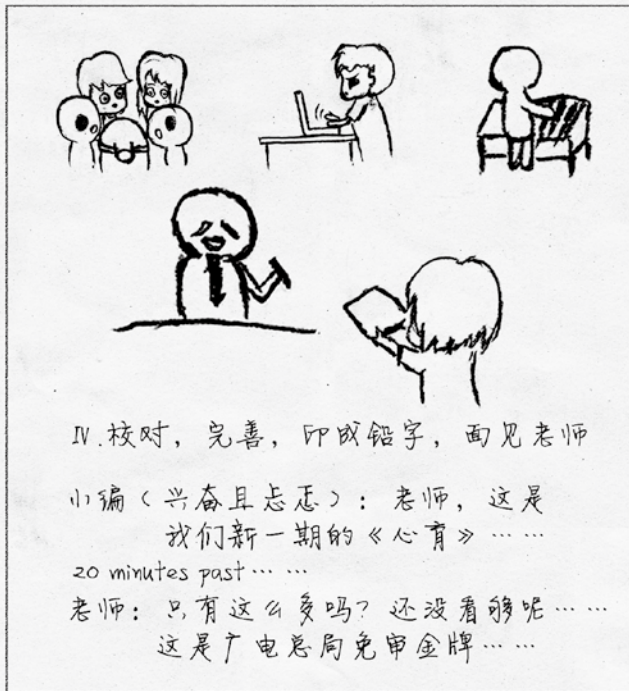 Ⅳ.校对，完善，印成铅字，面见老师
小编（兴奋且忐忑）：老师，这是
我们新一期的《心育》……
20 minutes past……
老师：只有这么多吗？还没看够呢……
这是广电总局免审金牌……